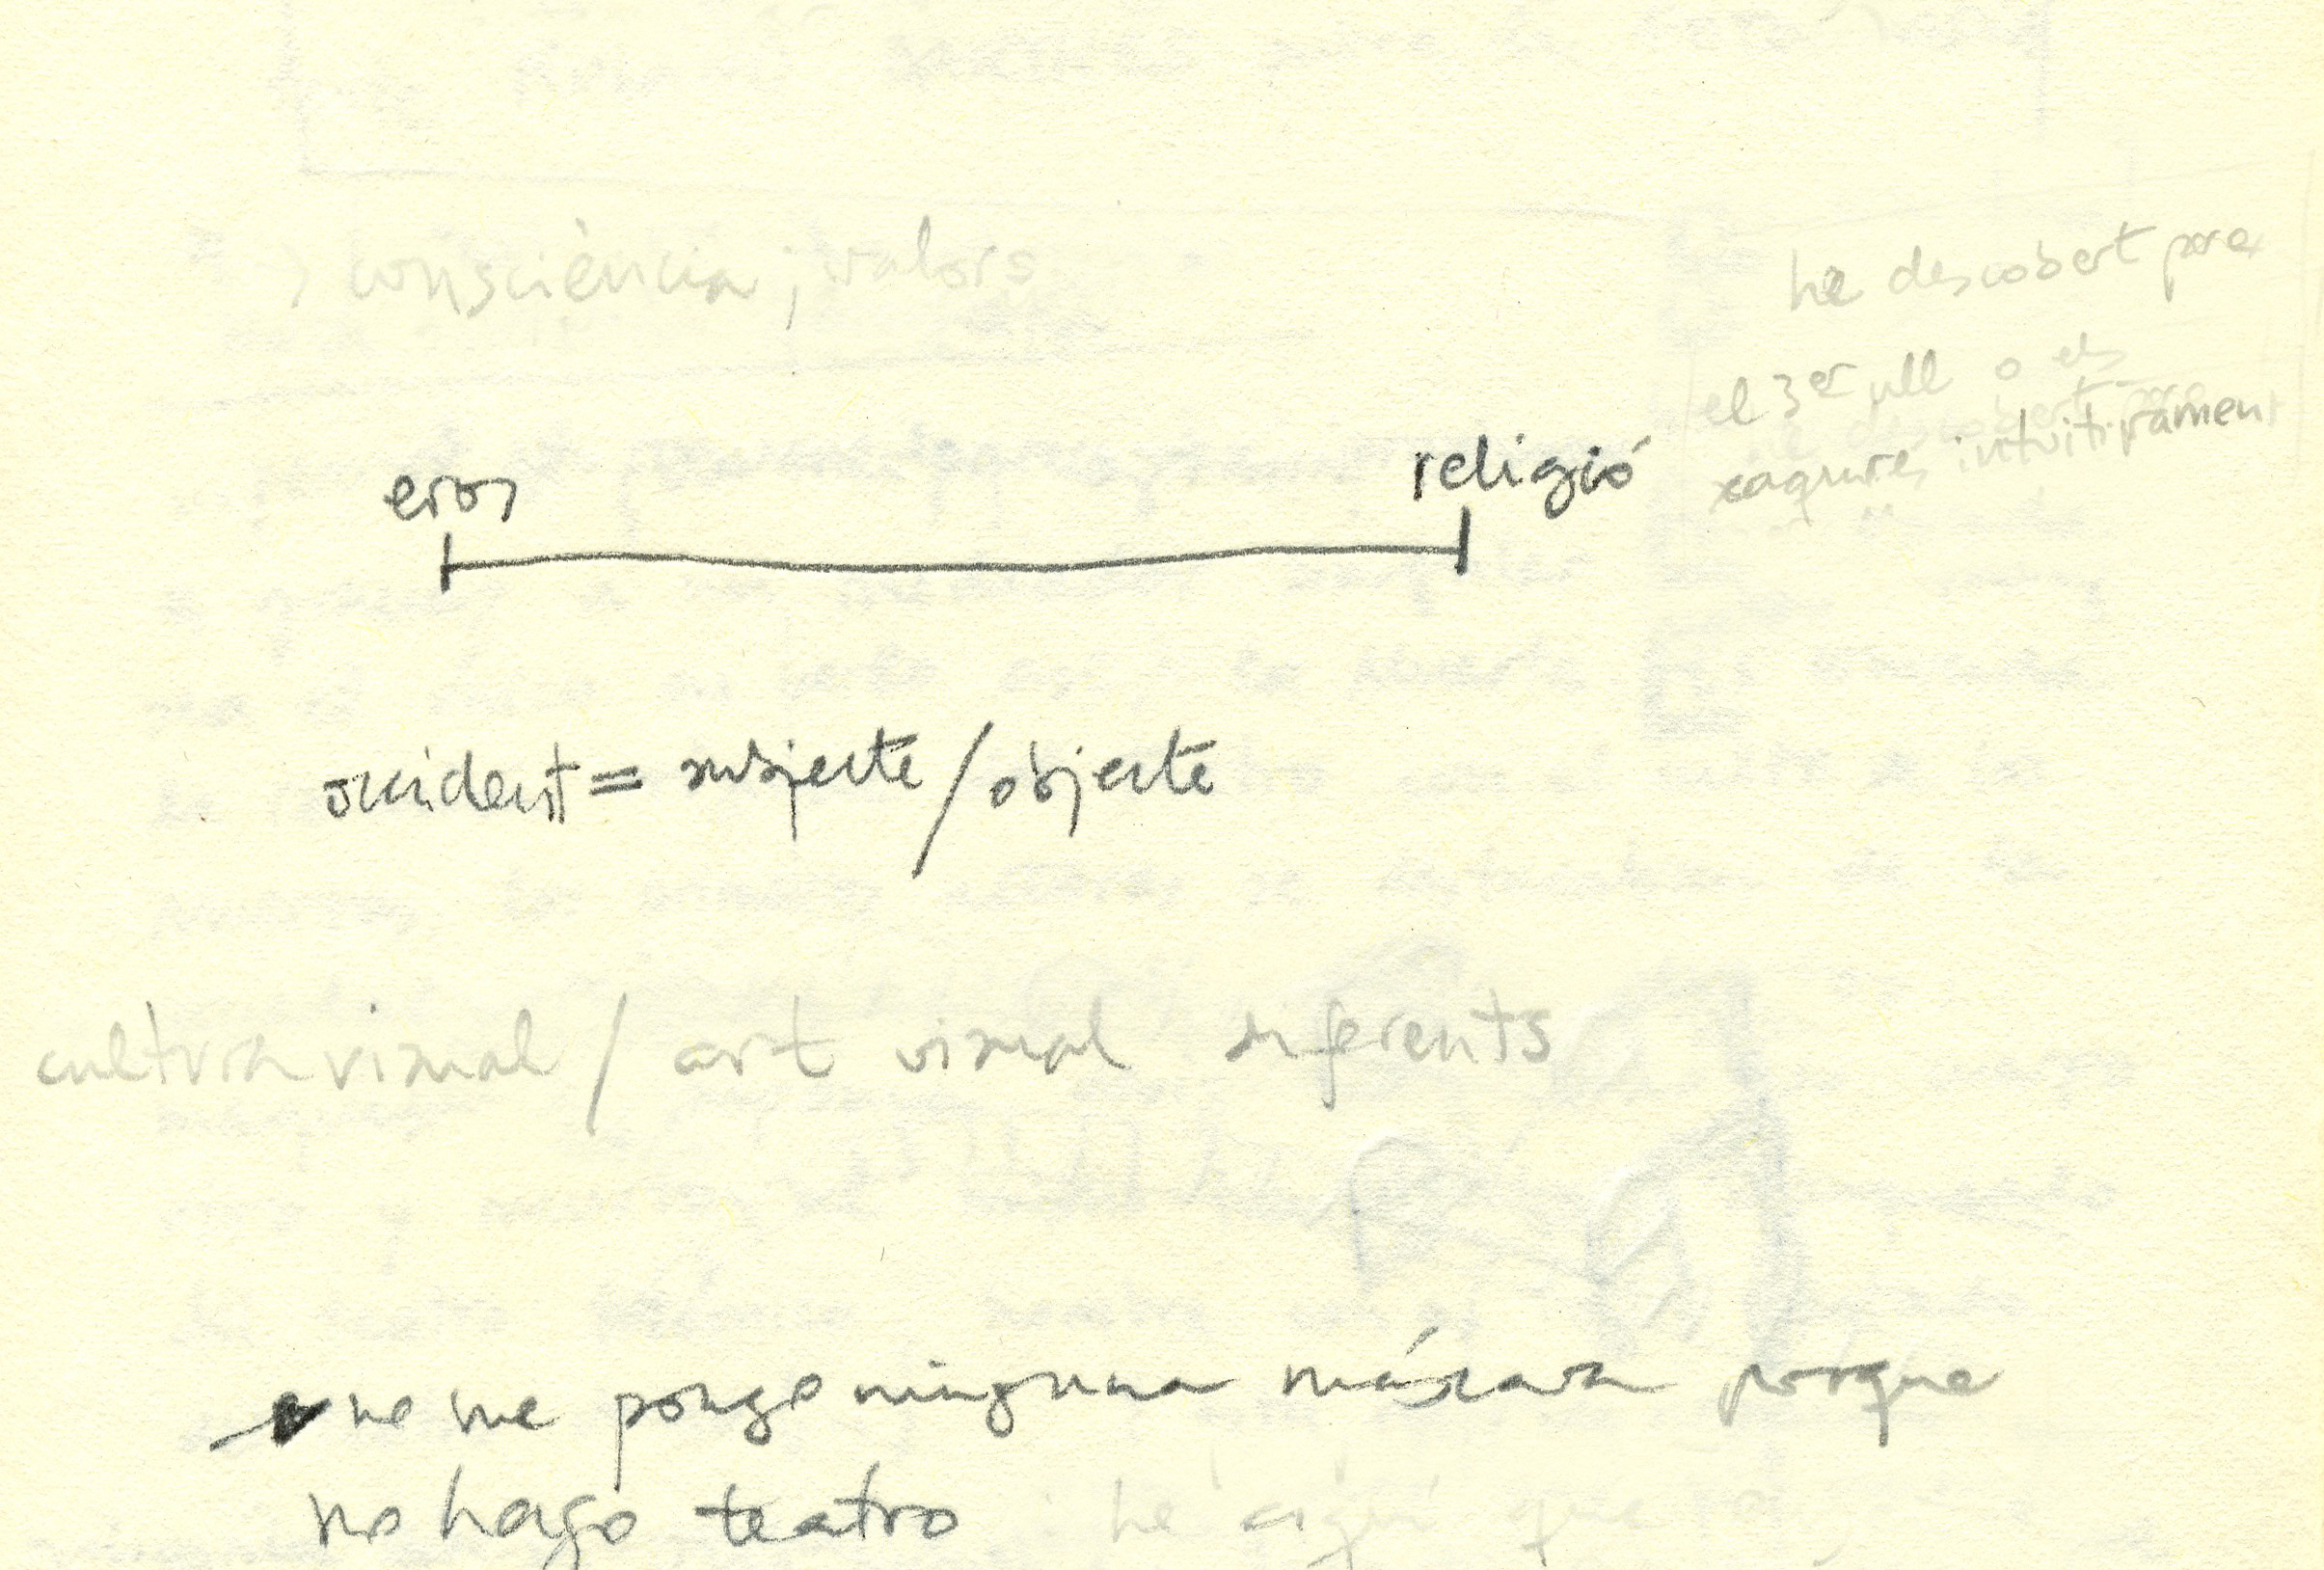 consciència; valors
he descobert per ex
el 3er ull o els
xaqures intuitivament
eros religió
occident = subjecte / objecte
cultura visual / art visual diferents
no me pongo ninguna máscara porque
no hago teatro he aquí que